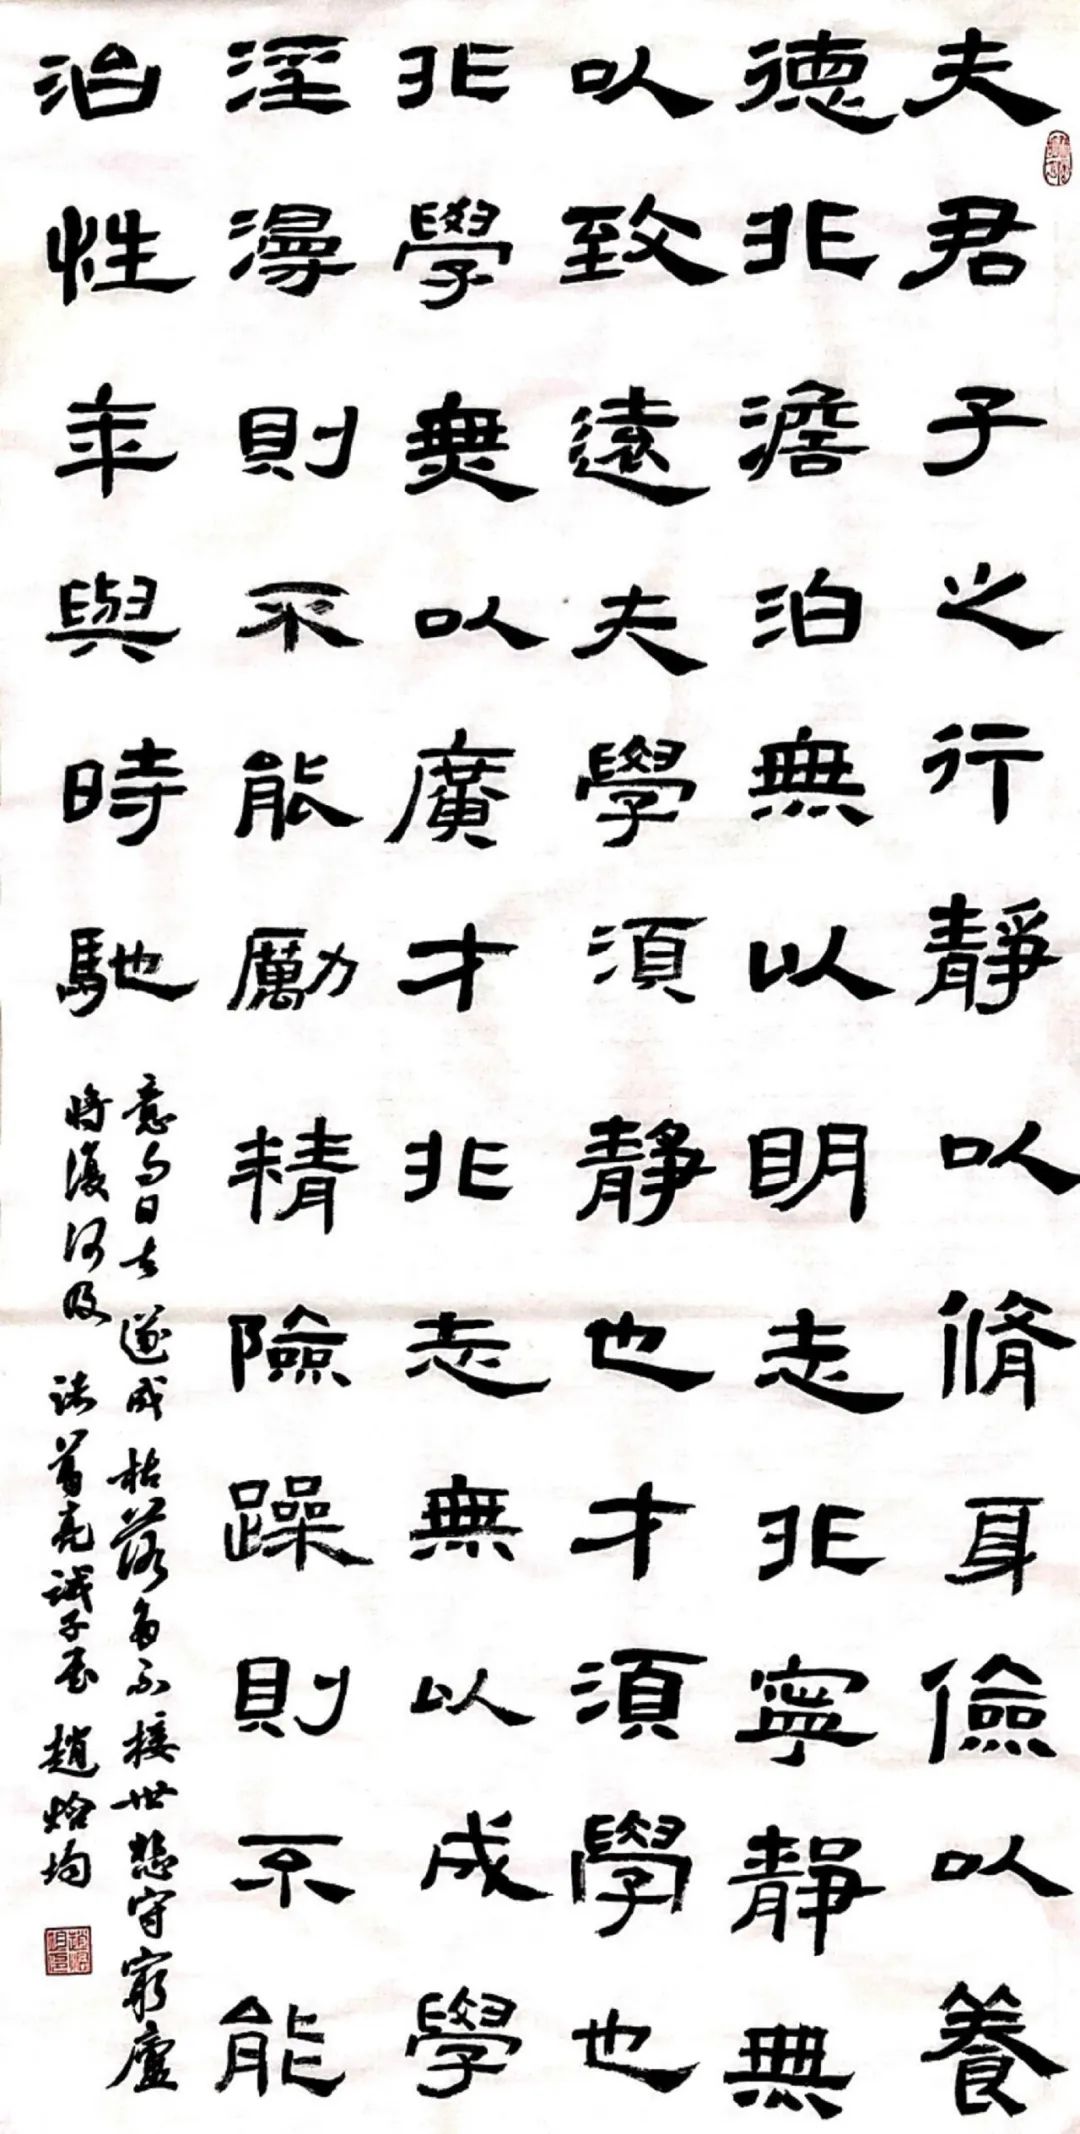 夫君子之行靜以脩身儉以養
德非澹泊無以眀志非寧靜無
以致遠夫學須靜也才須學也
非學無以廣才非志無以成學
淫漫則不能勵精險躁則不能
治性年與時馳
意与日去遂成枯落多不接世悲守窮廬
將復何及 諸葛亮誡子書 趙焓均